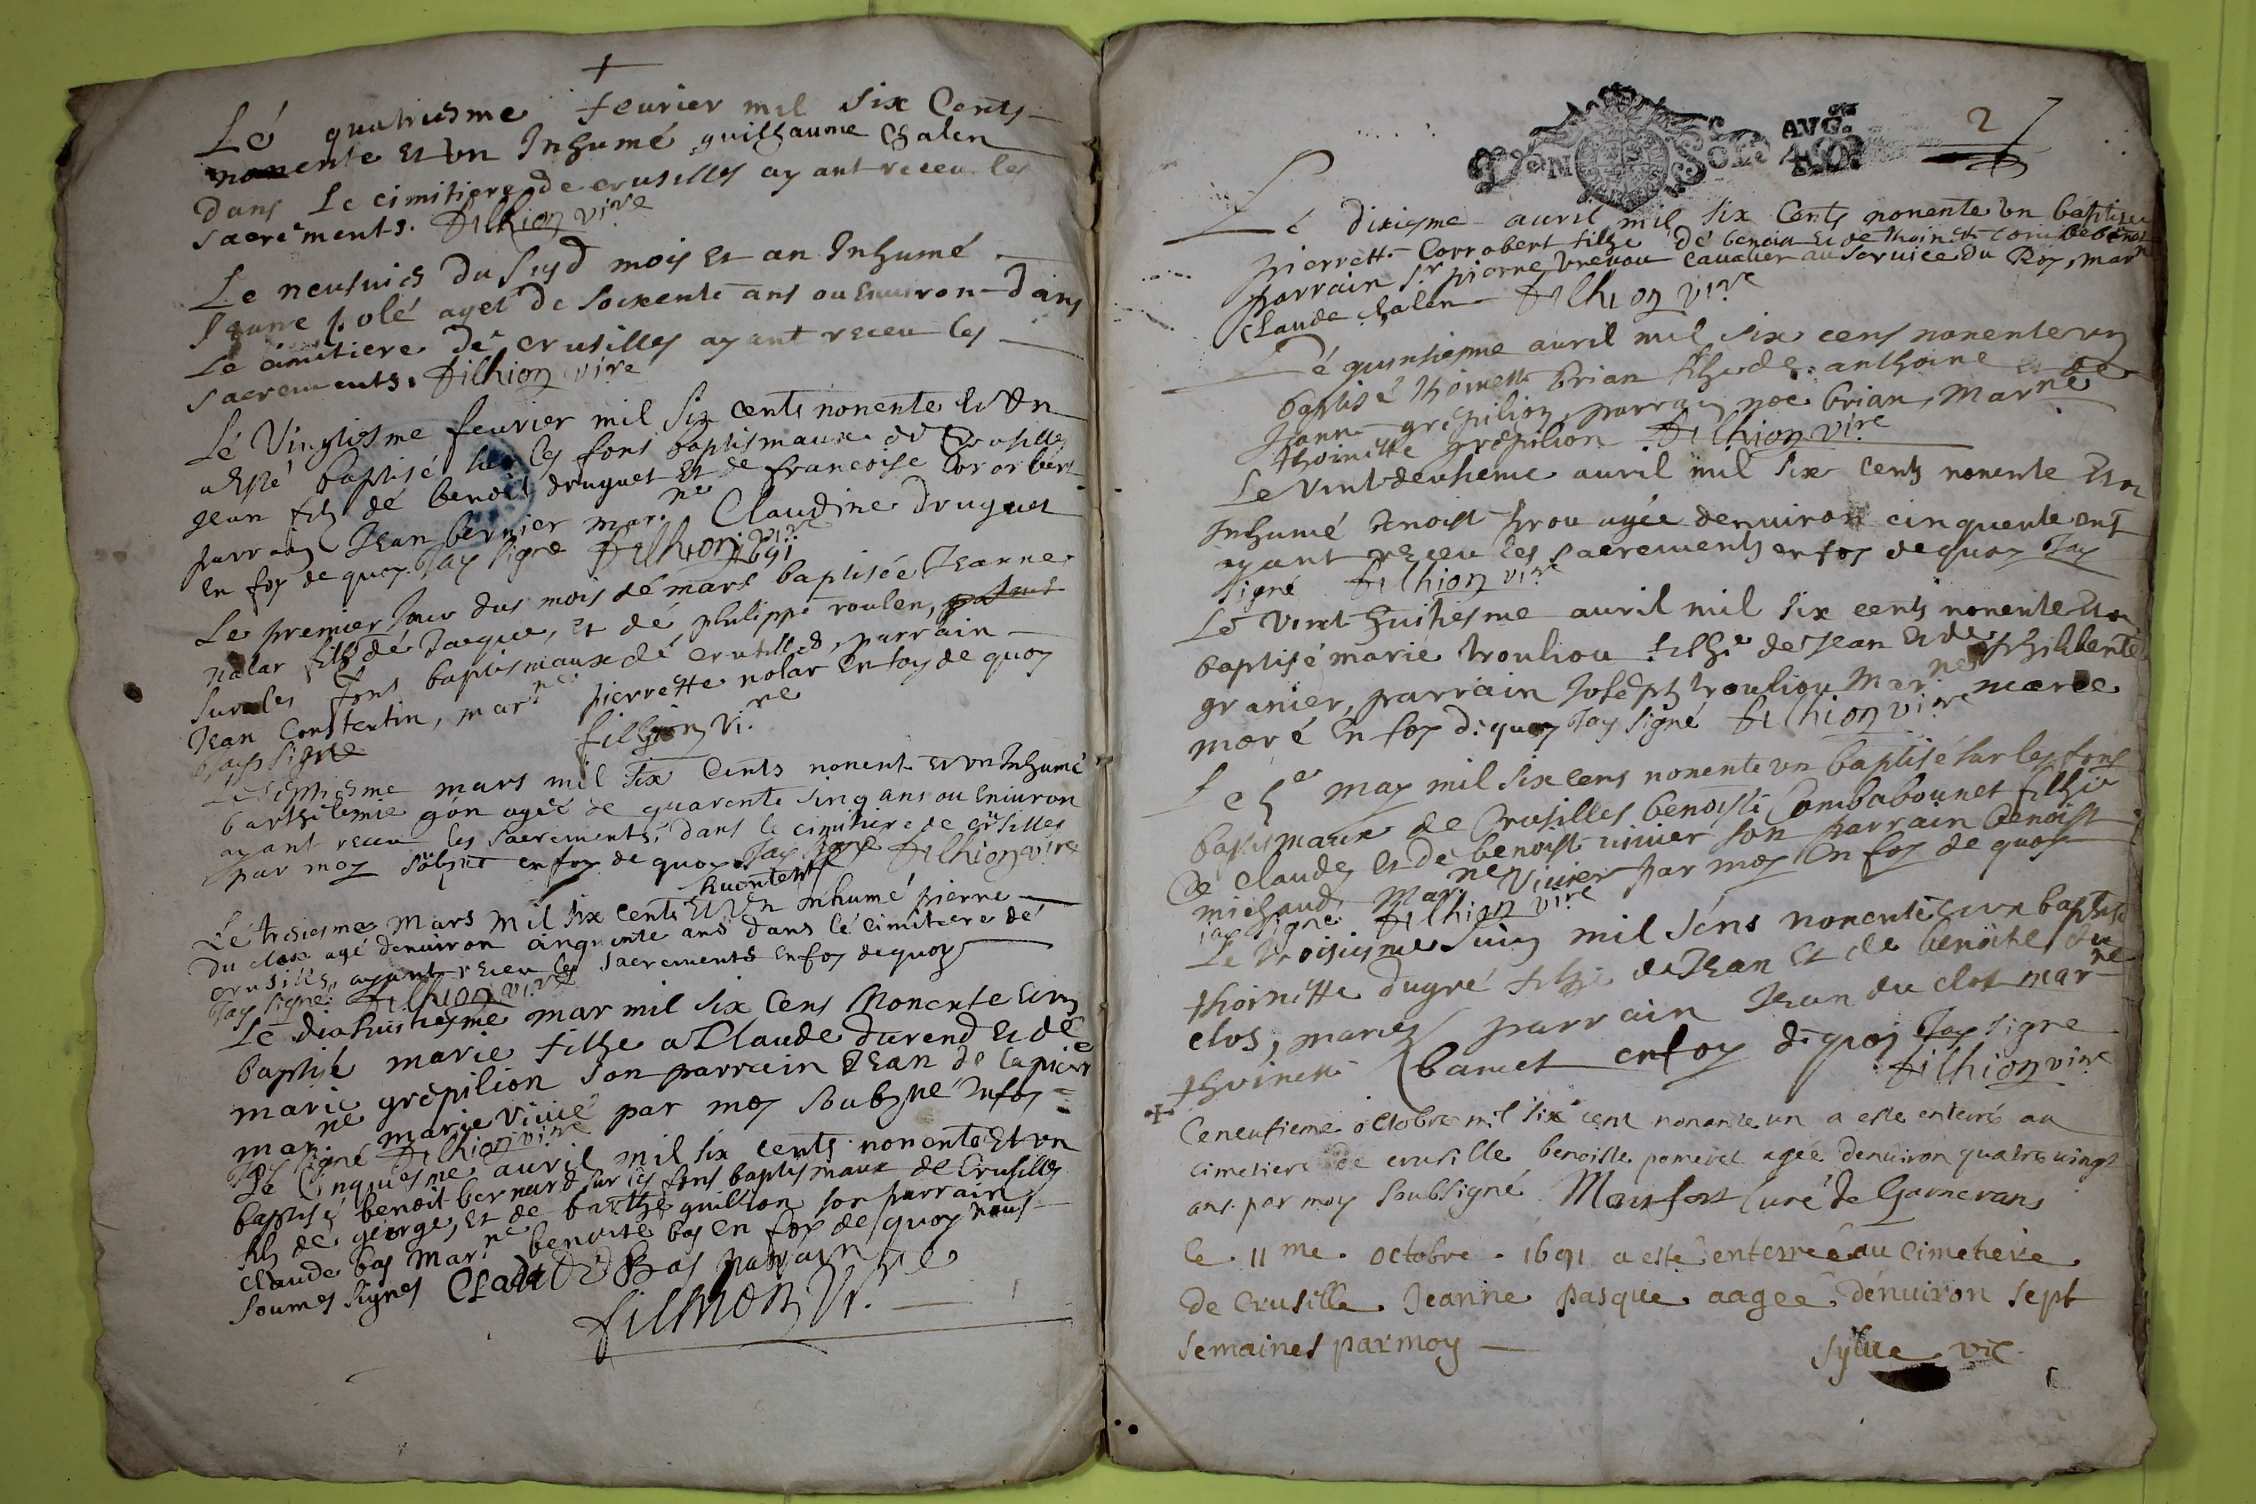 Lé quatriesme feurier mil Six Cents
nonente Et vn Inhumé guilhaume Chalen
dans Le cimitiere de crusilles ayant receu les
sacrements. filhion vi.re
Le neufuies du susd mois Et an Inhumé
polé ageé de soixente ans ou Enuiron dans
Le cimitiere de crusilles ayant receu les
sacrements. filhion vi.re
Lé vingtiesme feurier mil Six cents nonente Et Vn
a Esté baptisé sur les fons baptismaux de Crusilles
Jean fils dé benoit druguet Et de francoise
parrain Jean bernier mar.ne Claudine druguet
en foy de quoy Jay signé filhion vi.re
1691
Le premier Jour dus mois dé mars baptisée Jeanne
nolar dé Jacque, Et dé philippe roulen,
sur les fons baptismaux dé crusilles, parrain
Jean Constentin, mar.ne pierrette nolar En foy de quoy
Jay signe filhion vi.re
mars mil Six Cents nonente Et vn Inhumé
barthelemie gon ageé de quarente sinq ans ou Enuiron
ayant receu les sacrements, dans le cimitiere de crusilles
par moy soubsné en foy de quoy Jay signé filhion vi.re
Lé mars mil six cents Et Vn Inhumé pierre
du clos agé denuiron cinquente ans dans lé cimitiere dé
crusilles, ayant receu les sacrements En foy de quoy
Jay signé filhion vi.re
Le dixhuitiesme mar mil six Cens Nonente Et vn
baptisé marie filhe a Claude durend Et dé
marie grépilion son parrain Jean de lapierre
mar.ne marie viuié par moy soubsné Infoy
Jay signé filhion vi.re
Lé Cinquiesme auril mil six cents nonente Et vn
baptisé benoit bernard sur les fons baptismaux de Crusilles
fils de george, Et de barthe guillon son parrain
claude bos Mar.ne benoite bos En foy de quoy nous
soumes signes Claude Bos parrain
filhion Vi.re
GEN
DE LION
AVG.
2
Lé dixiesme auril mil six Cents nonente vn baptisée
pierrette Corrobert filhe dé benoit Et de
parrain S.r pierre cauatier au Seruice du Roy, mar.ne
Claude Chalen filhion vi.re
Lé quinsiesme auril mil six cens nonente vn
baptisé thoinette brian filhe de anthoine Et de
Jeanne grépilion, parrain noe brian, Mar.ne
thoinette grépilion filhion vi.re
Le Vint deuxieme auril mil six cents nonente Et vn
Inhumé benoist trou agée denuiron cinquente ans
ayant receu les sacrements en foy de quoy Jay
signé filhion vi.re
Lé Vint huitiesme auril mil six cents nonente Et vn
baptisé marie trouliou filhe de Jean Et de philiberte
granier, parrain Joseph trouliou Mar.ne marie
moré En foy de quoy Jay signé filhion vi.re
Le may mil six cens nonente vn baptisé sur les fons
baptismaux de Crusilles benoiste Combabounet filhie
de claude Et de benoiste viuier son parrain benoist
michaud Mar.ne Viuier par moy En foy de quoy
Jay signe filhion vi.re
Le troisiesme Juin mil séns nonente Et vn baptisé
thoinette dugré filhe de Jean Et de benoite du
clos, mariés parrain Jean du clos mar.ne
thoinette bamet enfoy de quoy Jay signe
filhion vi.re
Ce neufieme octobre mil six cent nonante un a esté enterré au
cimetiere de crusille benoiste pomeret agée denuiron quatre vingt
ans par moy soubsigné Monfort Curé de Garnerans
le 11me octobre 1691 a esté enterreé au cimetiere
de Crusille Jeanne pasque aagée dénuiron sept
semaines par moy
Sylue vic